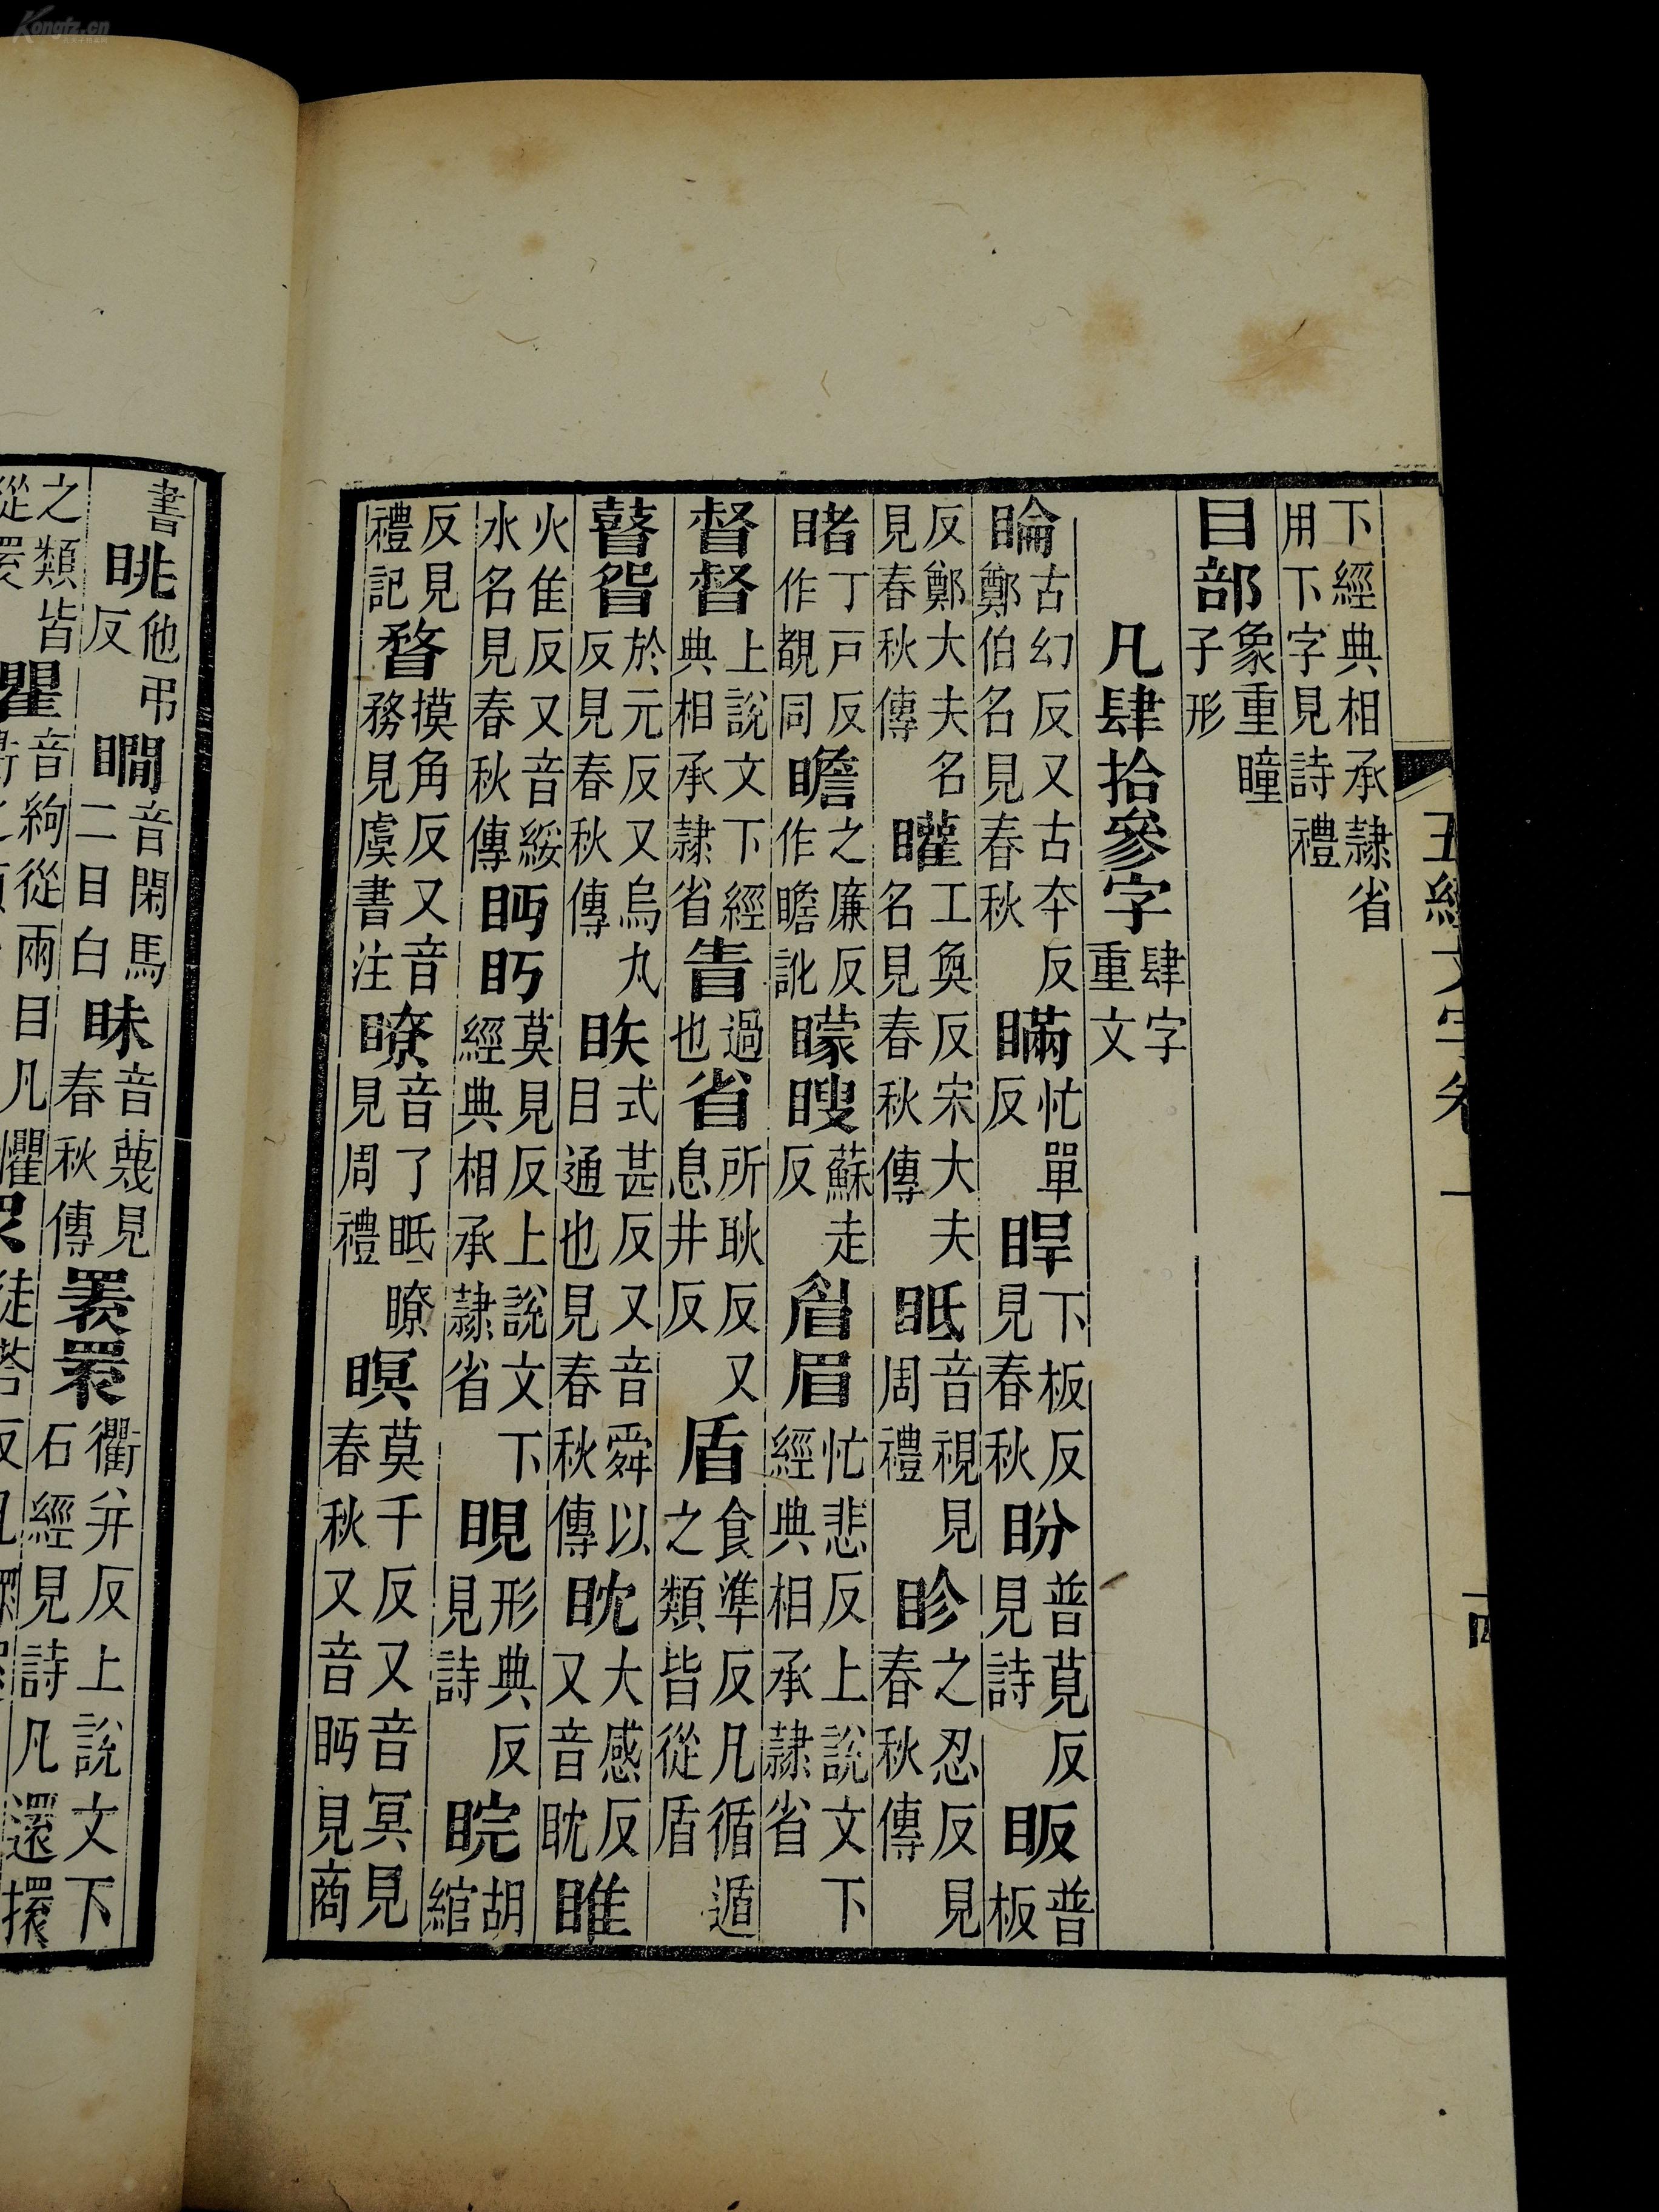 五經文字卷一
下經典相承隸省用下字見詩禮
目部象重瞳子形
凡肆拾參字肆字重文
睔古幻反又古夲反鄭伯名見春秋瞞忙單反睅下板反見春秋盼普莧反見詩眅普板
反鄭大夫名見春秋傳矔工奐反宋大夫名見春秋傳眡音視見周禮眕之忍反見春秋傳
睹丁戸反作覩同瞻之廉反作瞻訛矇瞍蘇走反睂眉忙悲反上說文下經典相承隸省
督督上說文下經典相承隸省眚過也省所耿反又息井反盾食準反凡循遁之類皆從盾
瞽眢於元反又烏丸反見春秋傳眣式甚反又音舜以目通也見春秋傳眈大感反又音眈睢
火隹反又音綏水名見春秋傳眄眄莫見反上說文下經典相承隸省睍形典反見詩睆胡綰
反見禮記瞀摸角反又音務見虞書注瞭音了眡瞭見周禮瞑莫千反又音冥見春秋又音眄見商
書眺他弔反瞯音閑馬二目白眛音蔑見春秋傳瞏睘衢并反上說文下石經見詩凡還擐
之類皆從睘瞿音絇從兩目凡懼